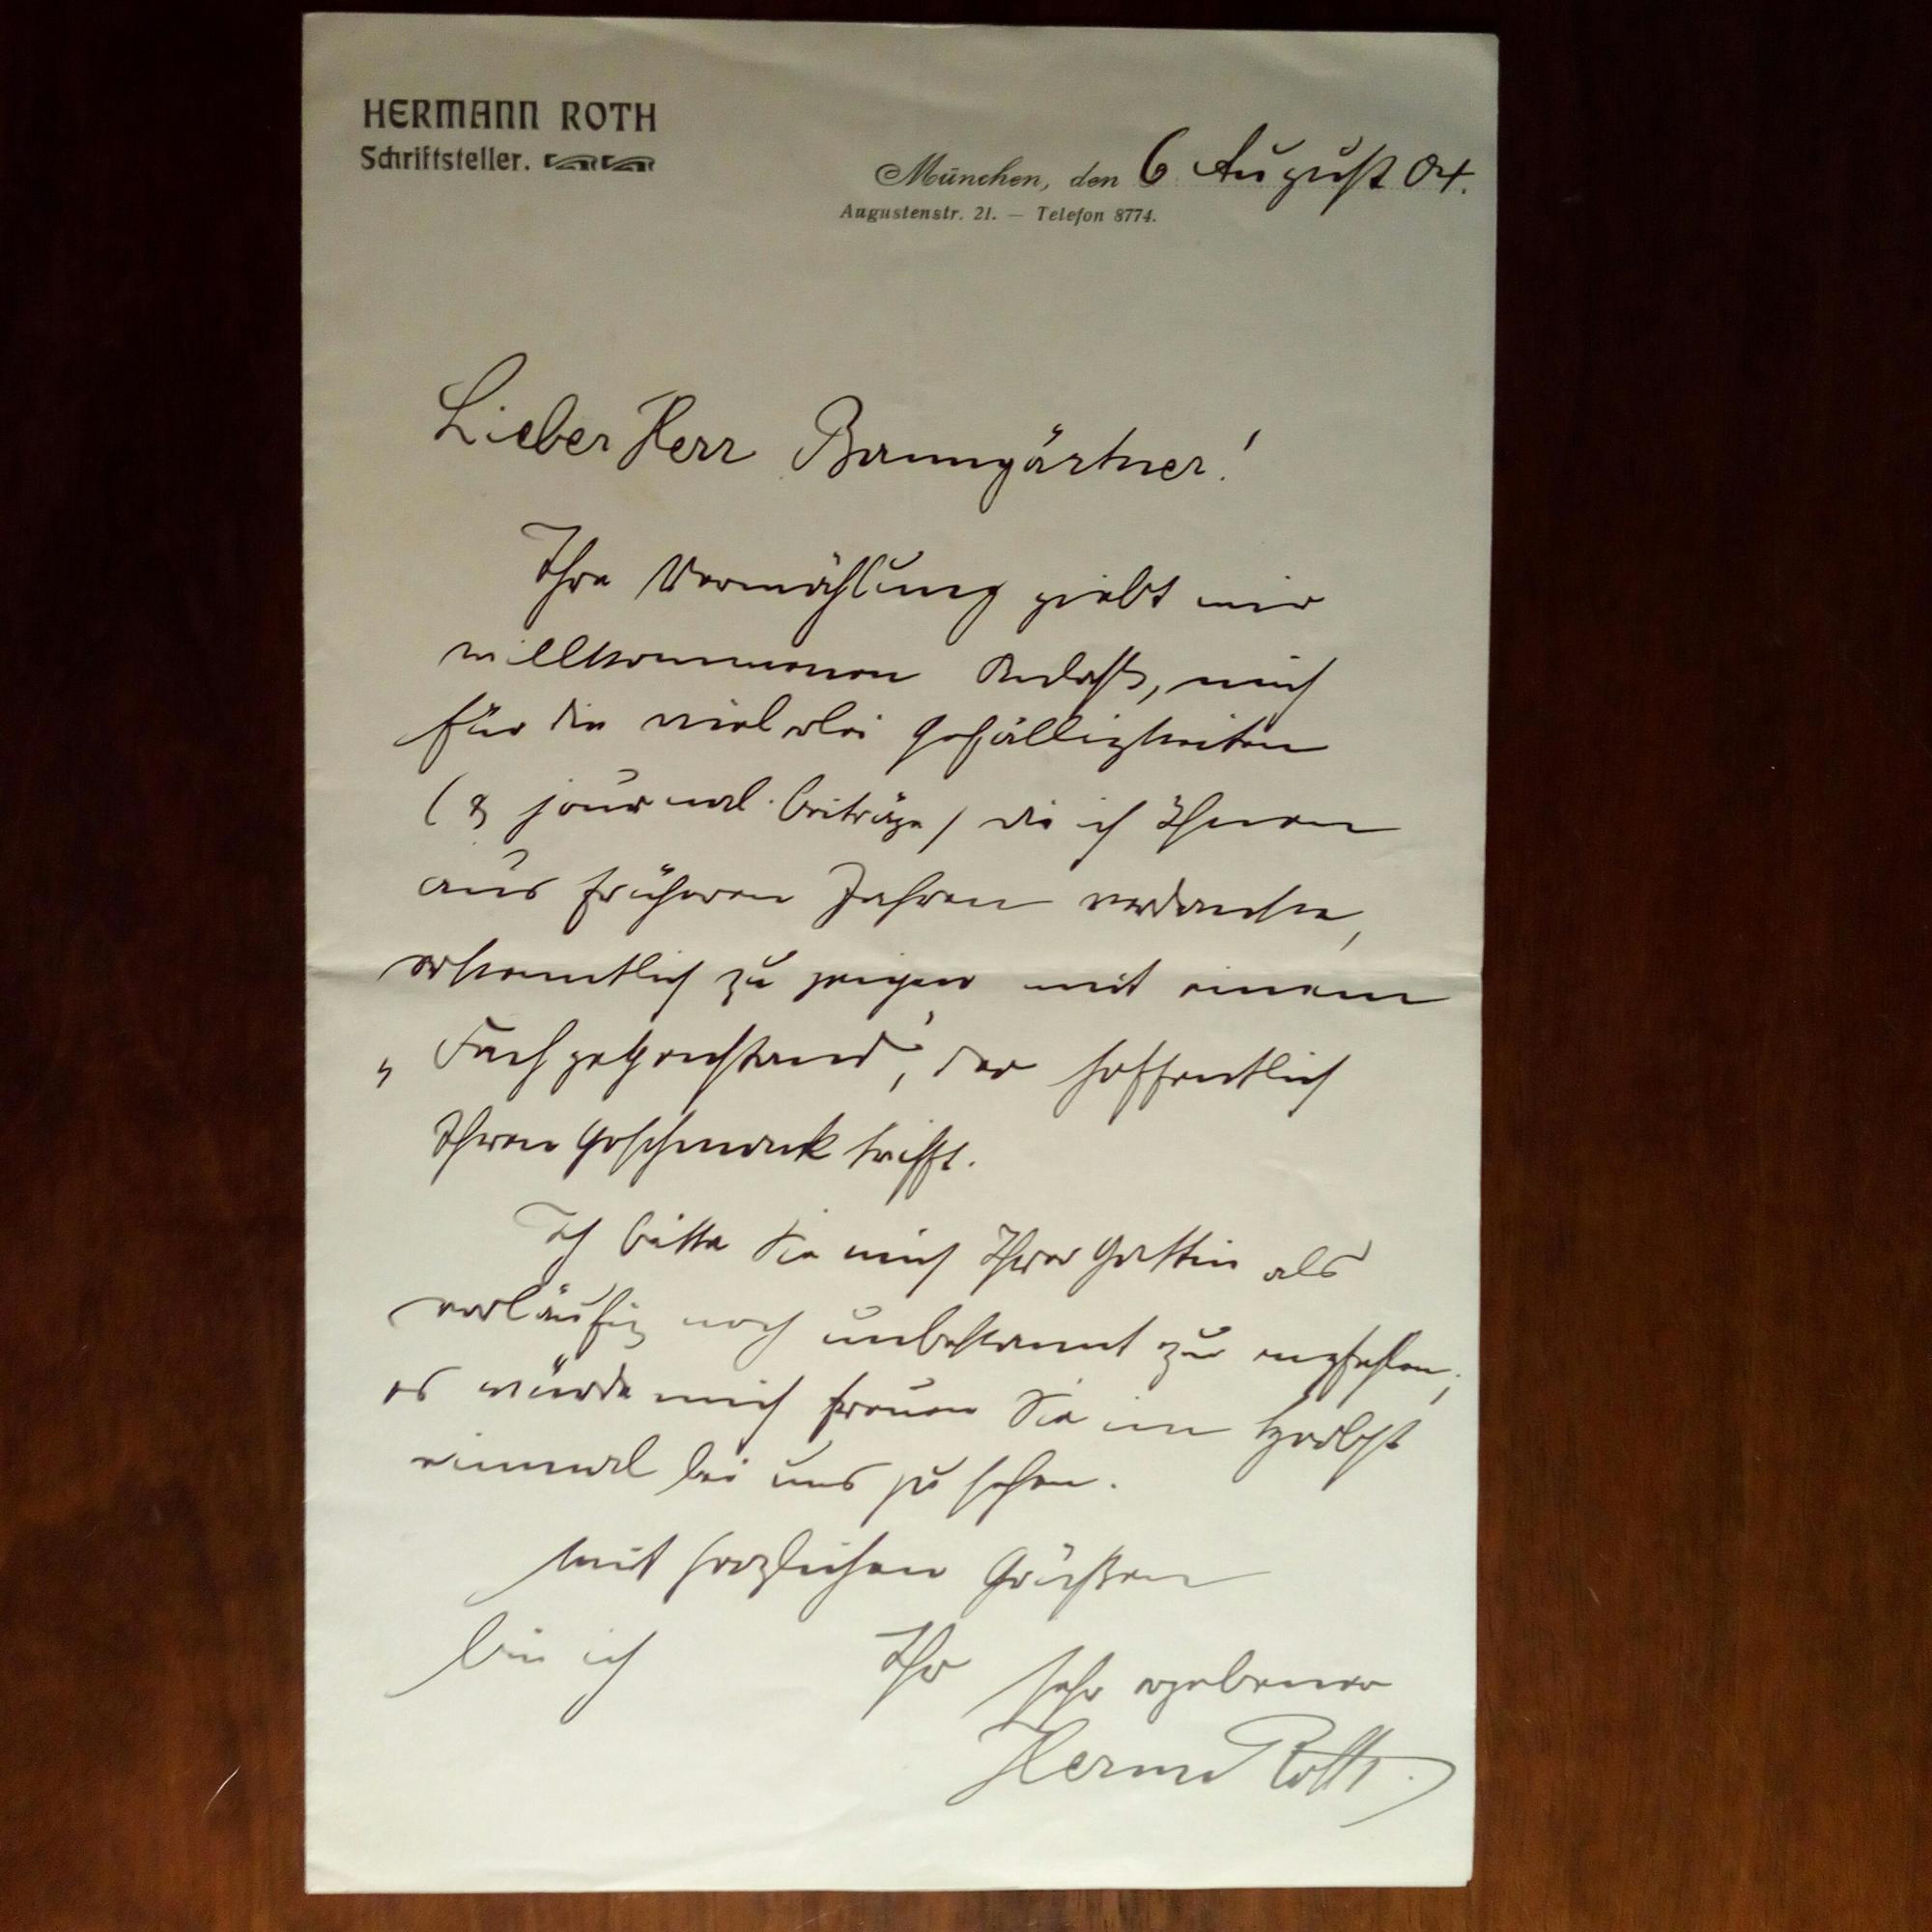 HERMANN ROTH
Schriftsteller.
München, den 6 August 04.
Augustenstr. 21. — Telefon 8774.
Lieber Herr Baumgärtner!
Ihre Vermählung giebt mir
willkommenen Anlaß, mich
für die vielerlei Gefälligkeiten
(& journal. beiträge) die ich Ihnen
aus früheren Jahren verdanke,
erkenntlich zu zeigen mit einem
„Fachgegenstand", der hoffentlich
Ihren Geschmack trifft.
Ich bitte Sie mich Ihrer Gattin als
vorläufig noch unbekannt zu empfehlen;
es würde mich freuen Sie im Herbst
einmal bei uns zu sehen.
Mit herzlichen Grüßen
bin ich Ihr sehr ergebener
Herm. Roth.